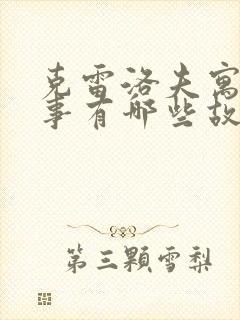 克雷洛夫寓
事有哪些故
第三颗雪梨